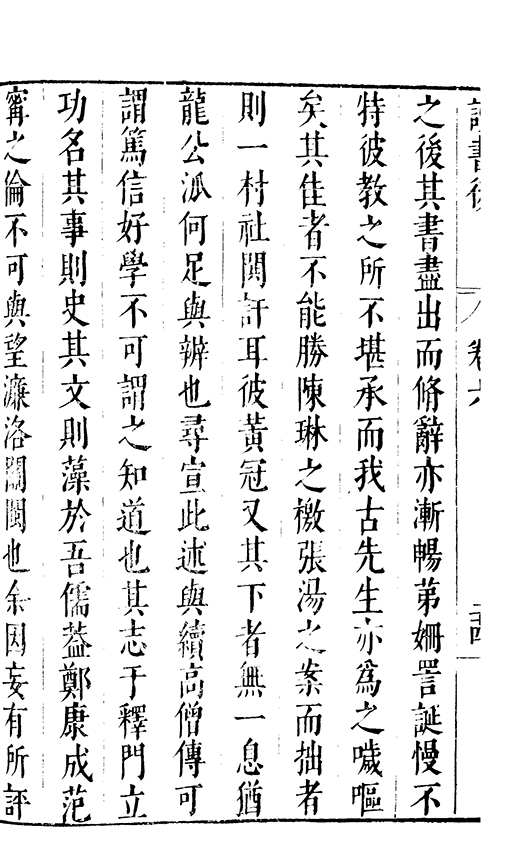 讀書後 卷六 二十四
之後其書盡出而脩辭亦漸暢苐姍詈誕慢不
特彼教之所不堪承而我古先生亦為之噦嘔
矣其佳者不能勝陳琳之檄張湯之案而拙者
則一村社鬨訐耳彼黃冠又其下者無一息猶
龍公派何足與辨也尋宣此述與續高僧傳可
謂篤信好學不可謂之知道也其志于釋門立
功名其事則史其文則藻於吾儒葢鄭康成范
甯之倫不可與望濂洛關閩也余因妄有所評